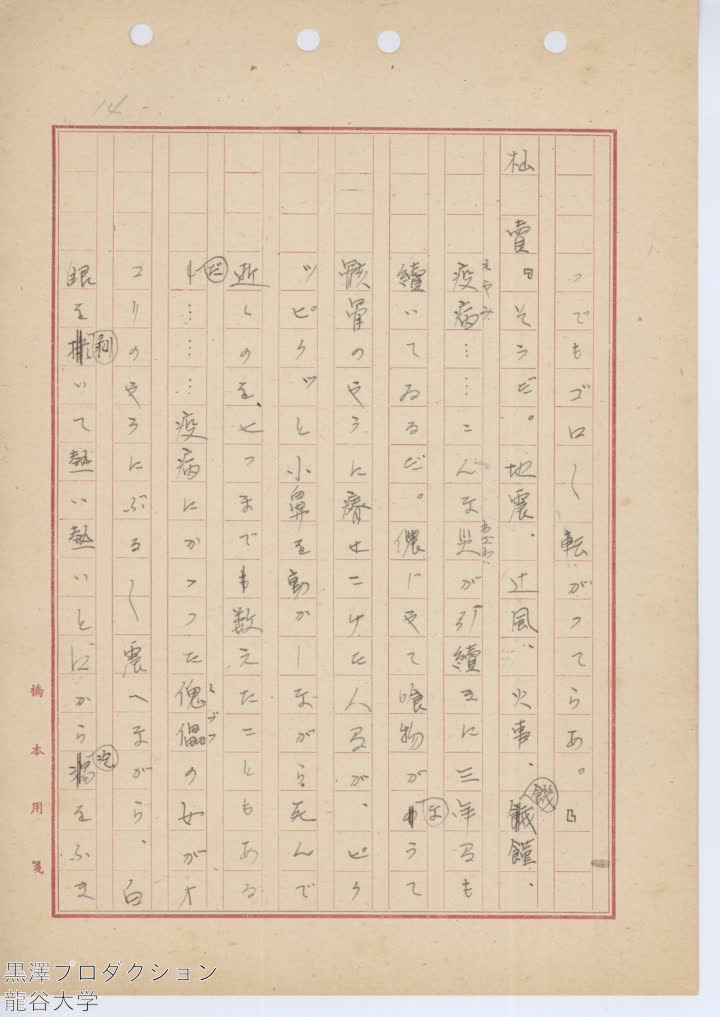 14
つでもゴロ〱転がつてらあ。』
杣賣『そうだ。地震、辻風、火事、饑饉、
疫病……こんな災が引續きに三年間も
續いてゐるだ。儂ーやて喰物がなうて
骸骨のやうに瘠せこけた人間が、ピク
ツピクツと小鼻を動かしながら死んで
逝くのを、七つまでも数えたこともある
だ……疫病にかゝつた傀儡の女がオ
コリのやうにぶる〱震へながら、白
眼を剥いて熱い熱いと口から泡をふき
えやみ
わざわい
くぐつ
橋本用箋
黒澤プロダクション
龍谷大学